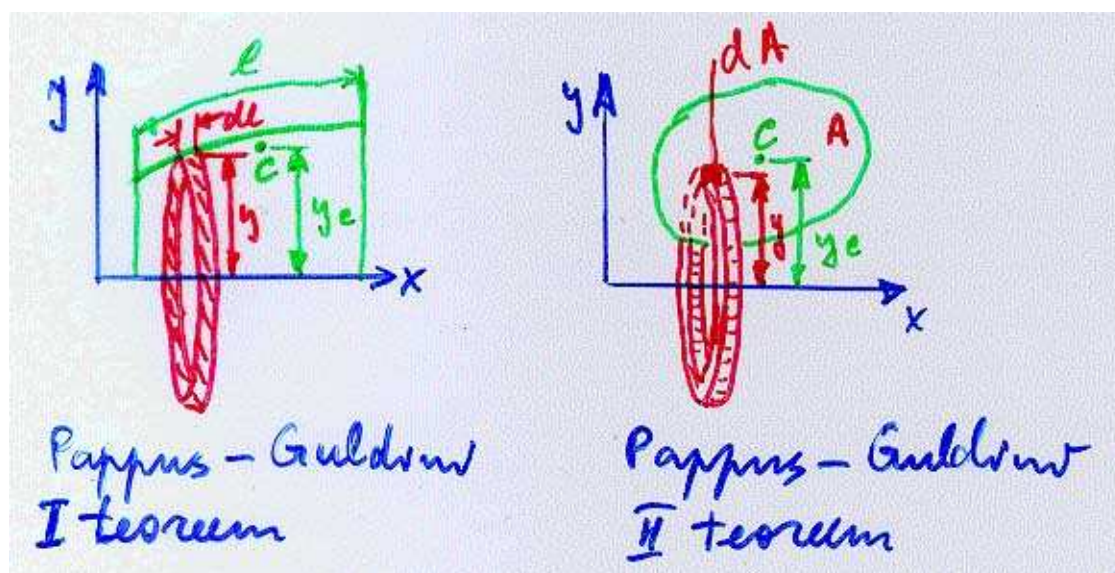 y
l
dl
C
y
yc
x
Pappus – Guldini
I teoreem
y
dA
A
C
y
yc
x
Pappus – Guldini
II teoreem